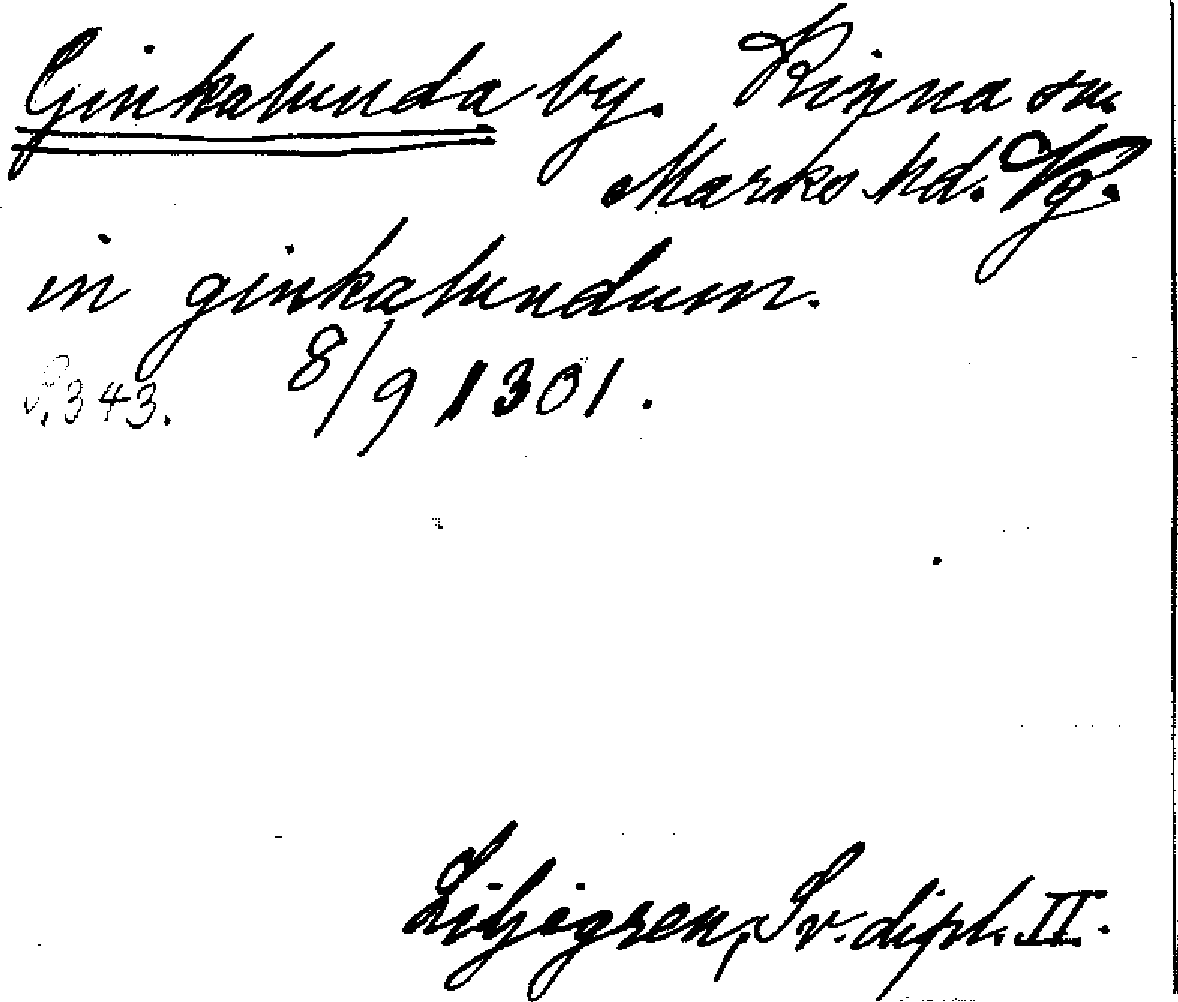 Ginkalunda by. Kinna sn.
Marks hd. Vg.
in ginkalundum.
S. 343. 8/9 1301.
Liljegren, Sv. dipl. II.